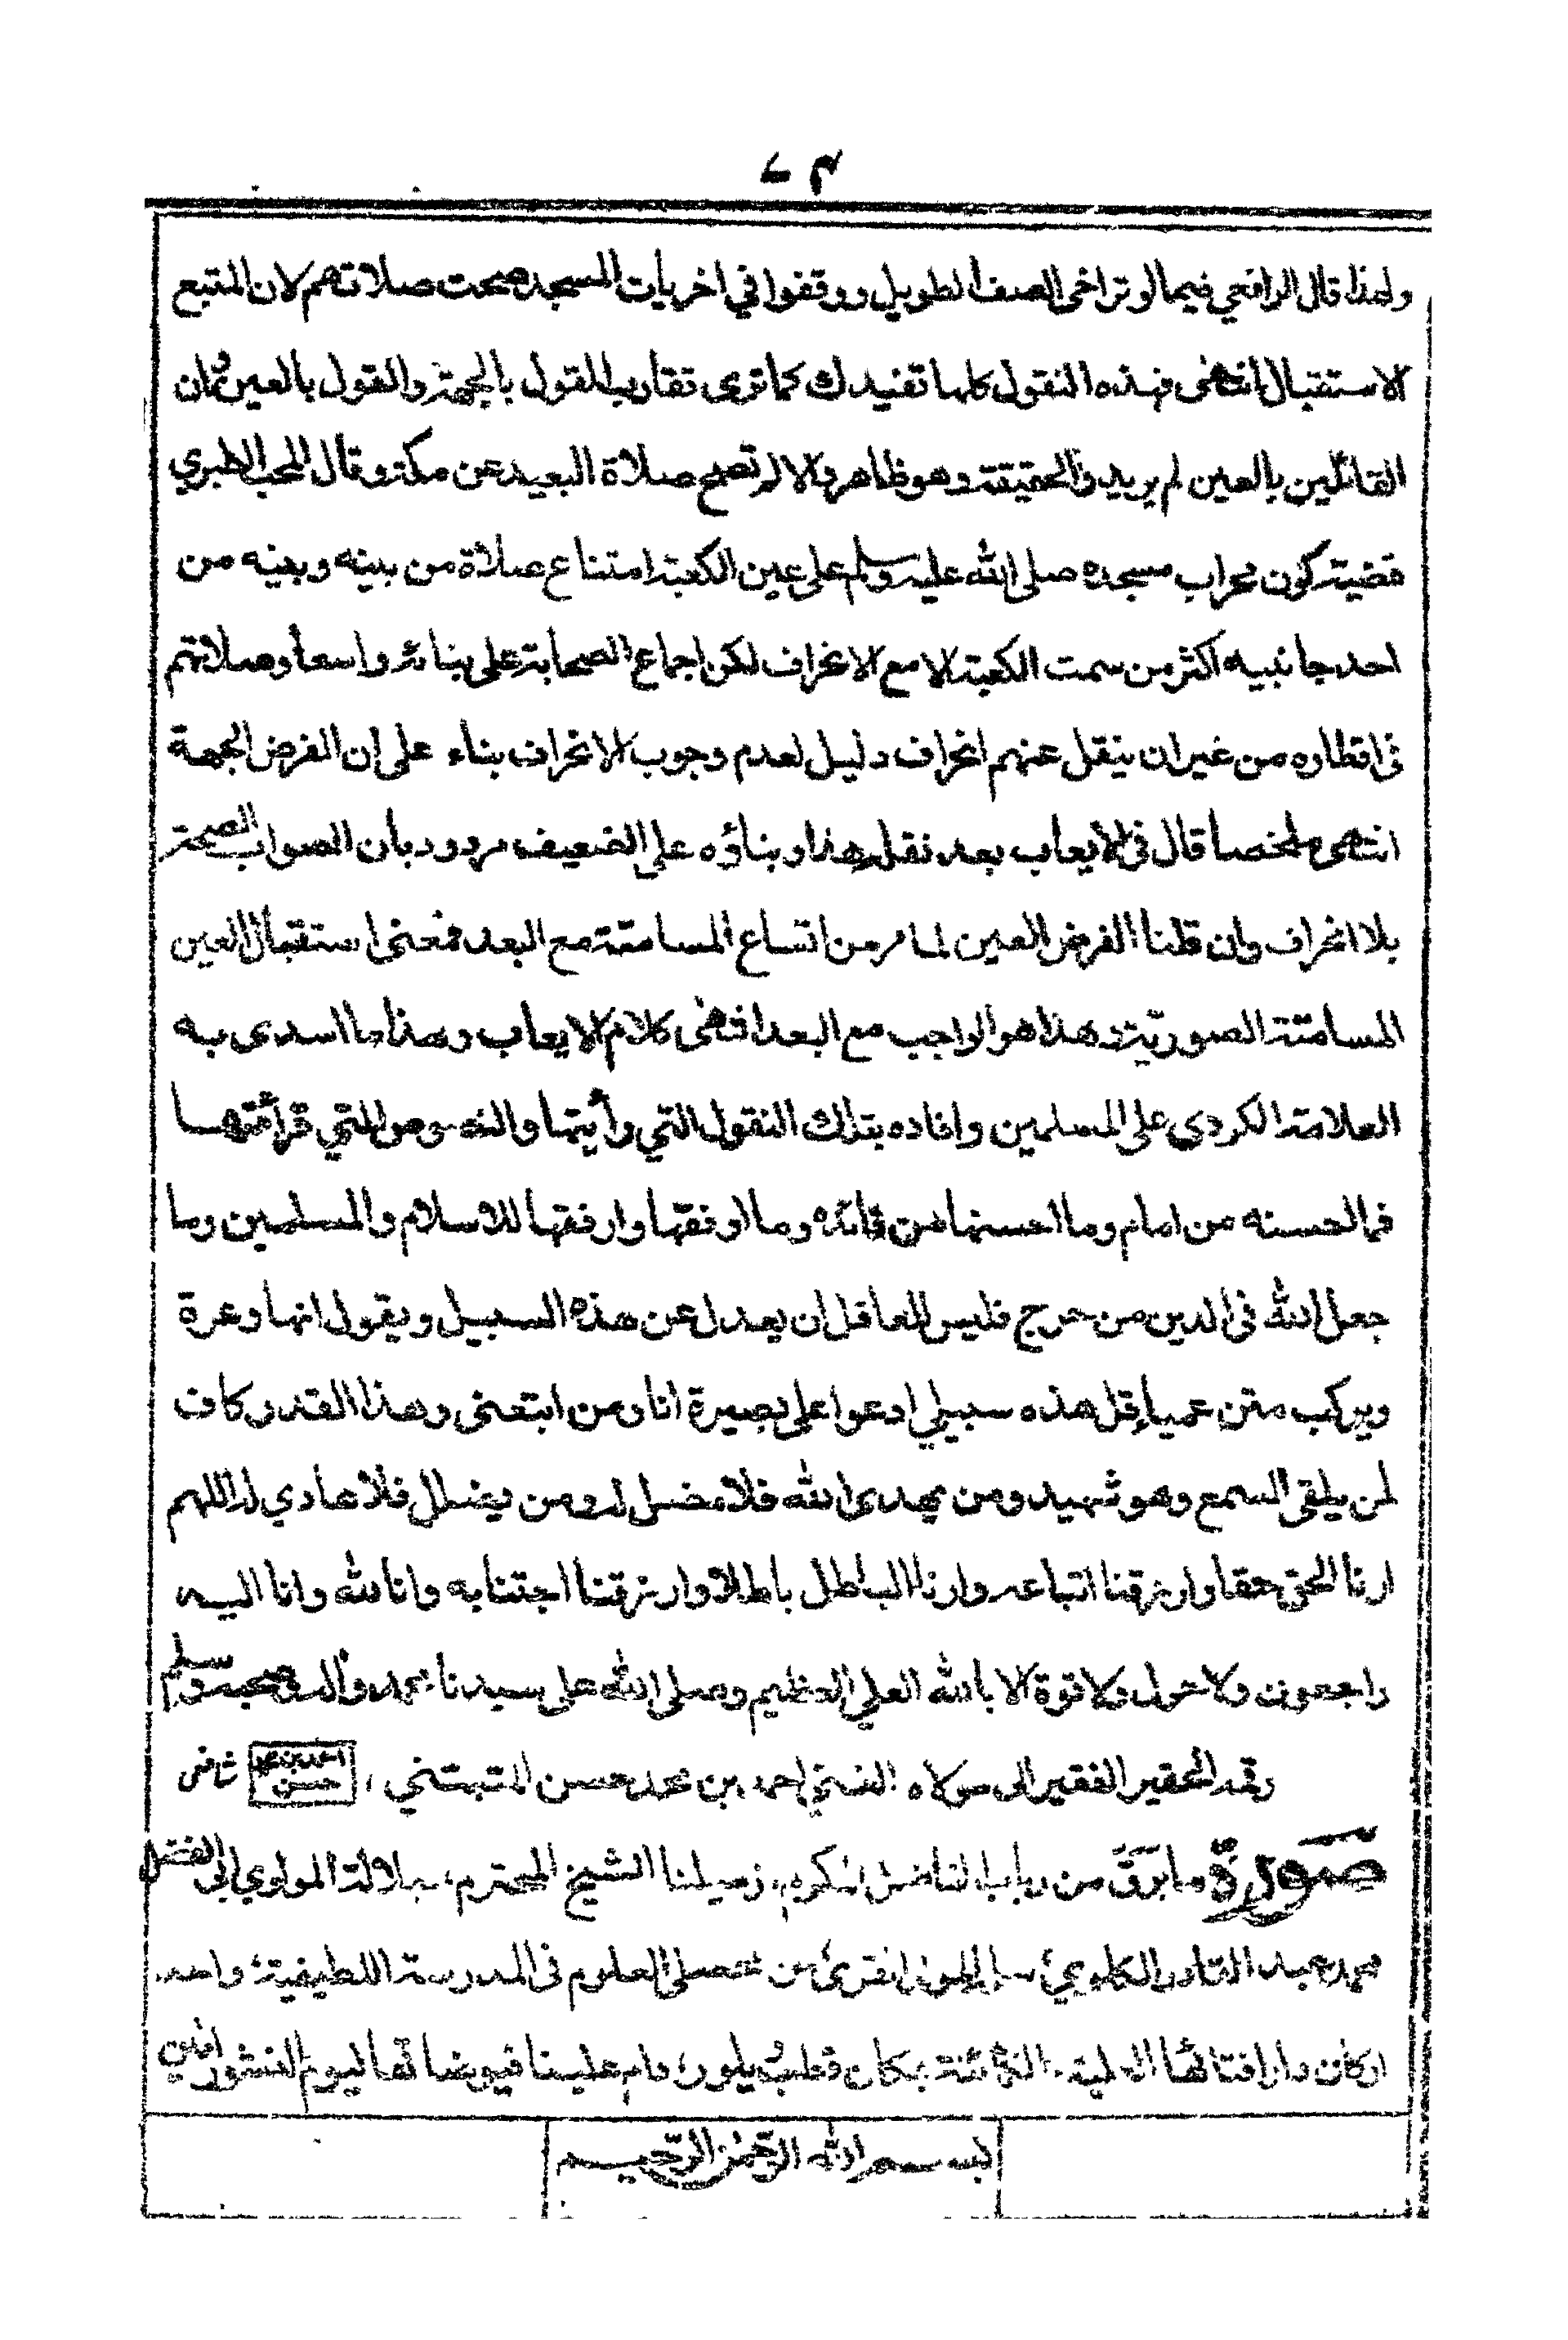 ولهذا قال الرافعي فيما لو تراخى الصف الطويل ووقفوا في اخريات المسجد صحت صلاتهم لان المتبع
الاستقبال انتهى فهذه النقول كلها تفيدك كما ترى تقارب القول بالجهة والقول بالعين ثم ان
القائلين بالعين لم يريدوا الحقيقة وهو ظاهر والا لم تصح صلاة البعيد عن مكة وقال المحب الطبري
قضية كون محراب مسجده صلى الله عليه وسلم على عين الكعبة امتناع صلاة من بينه وبينه من
احد جانبيه اكثر من سمت الكعبة الا مع الانحراف لكن اجماع الصحابة على بنائه واسعا وصلاتهم
في اقطاره من غير ان ينقل عنهم انحراف دليل لعدم وجوب الانحراف بناء على ان الفرض الجهة
انتهى ملخصا قال في الايعاب بعد نقله هذا وبناؤه على الضعيف مردود بأن الصواب الصحة
بلا انحراف وان قلنا الفرض العين لما مر من اتساع المسامتة مع البعد فمعنى استقبال العين
المسامتة الصورية وهذا هو الواجب مع البعد انتهى كلام الايعاب وهذا ما اسدى به
العلامة الكردي على المسلمين وافاده بتلك النقول التي رأيتها والنصوص التي قرأتها
فما احسنه من امام وما احسنها من فائده وما اوفقها وارفقها للاسلام والمسلمين وما
جعل الله في الدين من حرج فليس للعاقل ان يعدل عن هذه السبيل ويقول انها وعرة
ويركب متن عمياء قل هذه سبيلي ادعوا على بصيرة انا ومن اتبعنى وهذا القدر كاف
لمن يلقى السمع وهو شهيد ومن يهدى الله فلا مضل له ومن يضلل فلا هادي له اللهم
ارنا الحق حقا وارزقنا اتباعه وارنا الباطل باطلا وارزقنا اجتنابه وانا لله وانا اليه
راجعون ولا حول ولا قوة الا بالله العلي العظيم وصلى الله على سيدنا محمد وآله وصحبه وسلم
رقمه الحقير الفقير الى مولاه الغني احمد بن محمد حسن شافعى
احمد بن محمد حسن
صورة ما برق من الفاضل زميلنا الشيخ المحترم، المولوي ابي الفضل
محمد عبد القادر من محصلى العلوم في المدرسة اللطيفية، واحد
اركان دار افتائها بمكان قطب ويلور، دام علينا فيوضاتها ليوم النشور امين
بسم الله الرحمن الرحيم